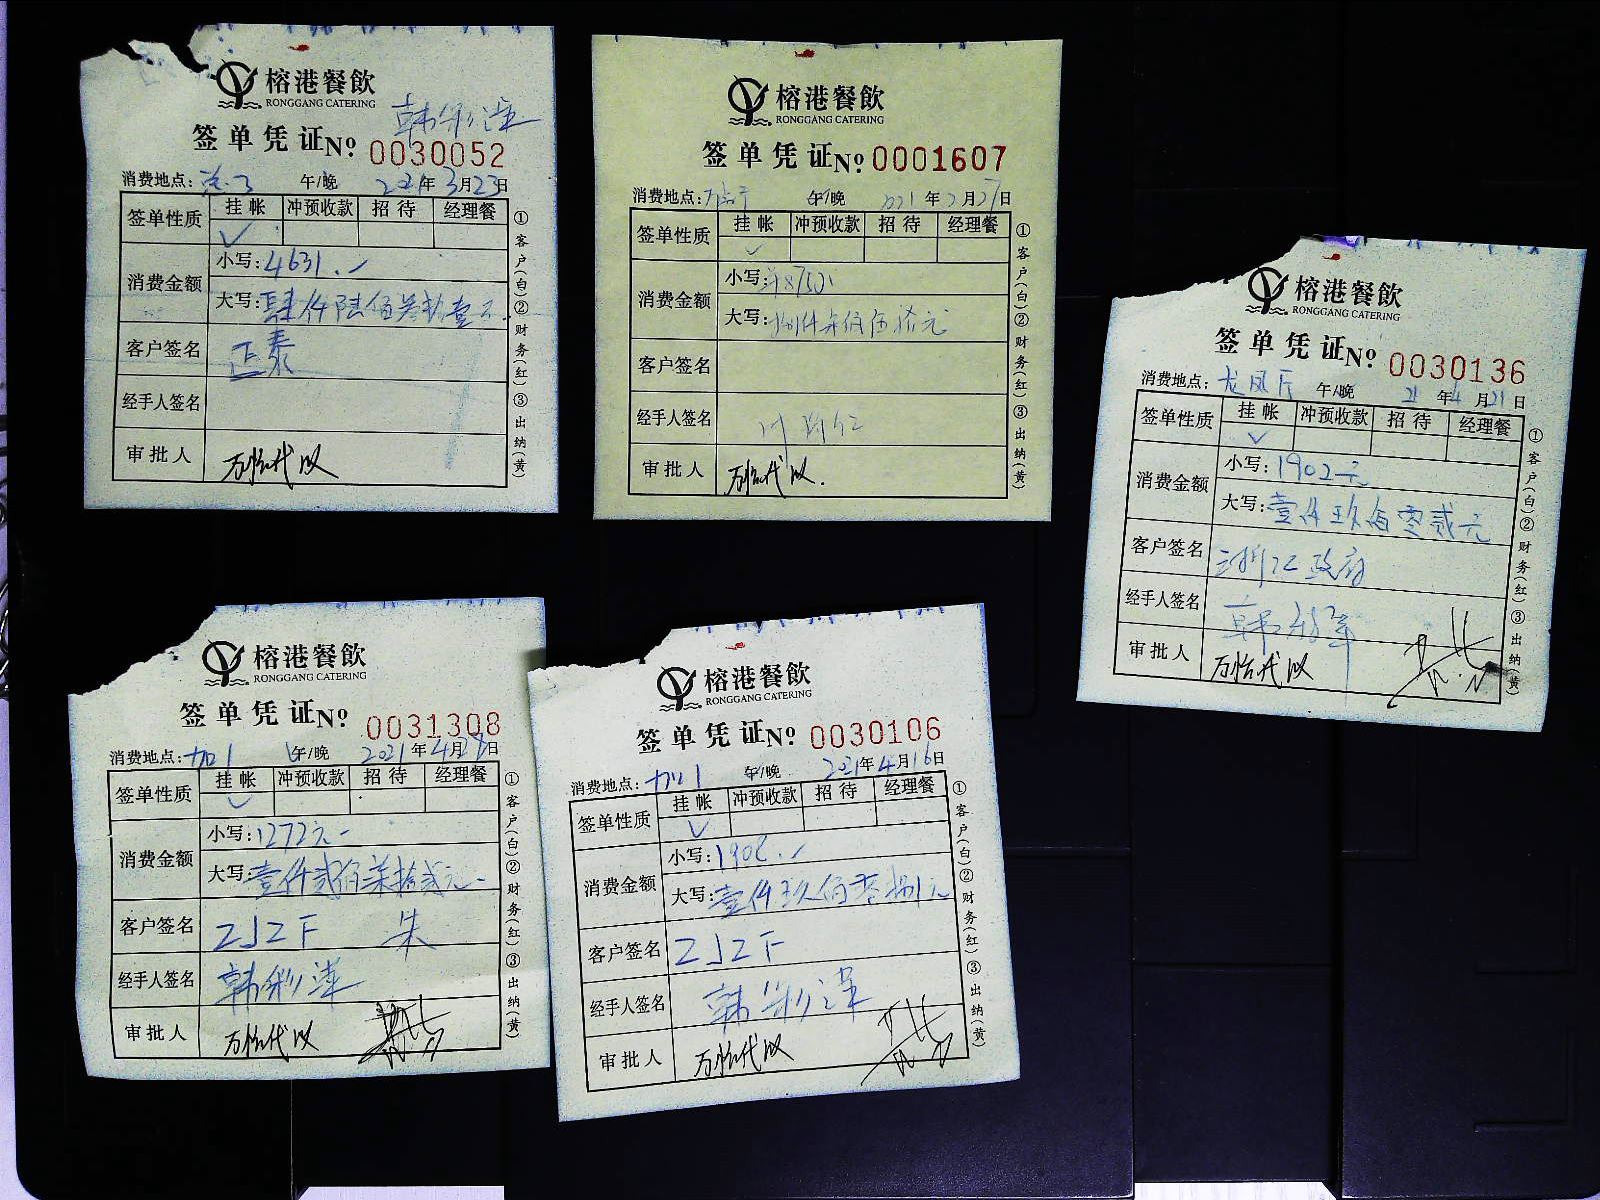 榕港餐飲
RONGGANG CATERING
韩彩萍
签单凭证 No. 0030052
消费地点: 午/晚 2021年3月23日
签单性质 挂帐 冲预收款 招待 经理餐
✓
消费金额 小写: 4631.-
大写: 肆仟陆佰叁拾壹元
客户签名 正泰
经手人签名
审批人
①客户(白)②财务(红)③出纳(黄)
榕港餐飲
RONGGANG CATERING
签单凭证 No. 0001607
消费地点: 午/晚 2021年2月27日
签单性质 挂帐 冲预收款 招待 经理餐
✓
消费金额 小写:
大写:
客户签名
经手人签名
审批人
①客户(白)②财务(红)③出纳(黄)
榕港餐飲
RONGGANG CATERING
签单凭证 No. 0030136
消费地点: 龙凤厅 午/晚 21年4月21日
签单性质 挂帐 冲预收款 招待 经理餐
✓
消费金额 小写: 1902元
大写: 壹仟玖佰零贰元
客户签名 浙江政府
经手人签名
审批人
①客户(白)②财务(红)③出纳(黄)
榕港餐飲
RONGGANG CATERING
签单凭证 No. 0031308
消费地点: 加1 午/晚 2021年4月28日
签单性质 挂帐 冲预收款 招待 经理餐
✓
消费金额 小写: 1272元-
大写: 壹仟贰佰柒拾贰元-
客户签名 ZJZF 朱
经手人签名 韩彩萍
审批人
①客户(白)②财务(红)③出纳(黄)
榕港餐飲
RONGGANG CATERING
签单凭证 No. 0030106
消费地点: 加1 午/晚 2021年4月16日
签单性质 挂帐 冲预收款 招待 经理餐
✓
消费金额 小写: 1908.-
大写: 壹仟玖佰零捌元
客户签名 ZJZF
经手人签名 韩彩萍
审批人
①客户(白)②财务(红)③出纳(黄)